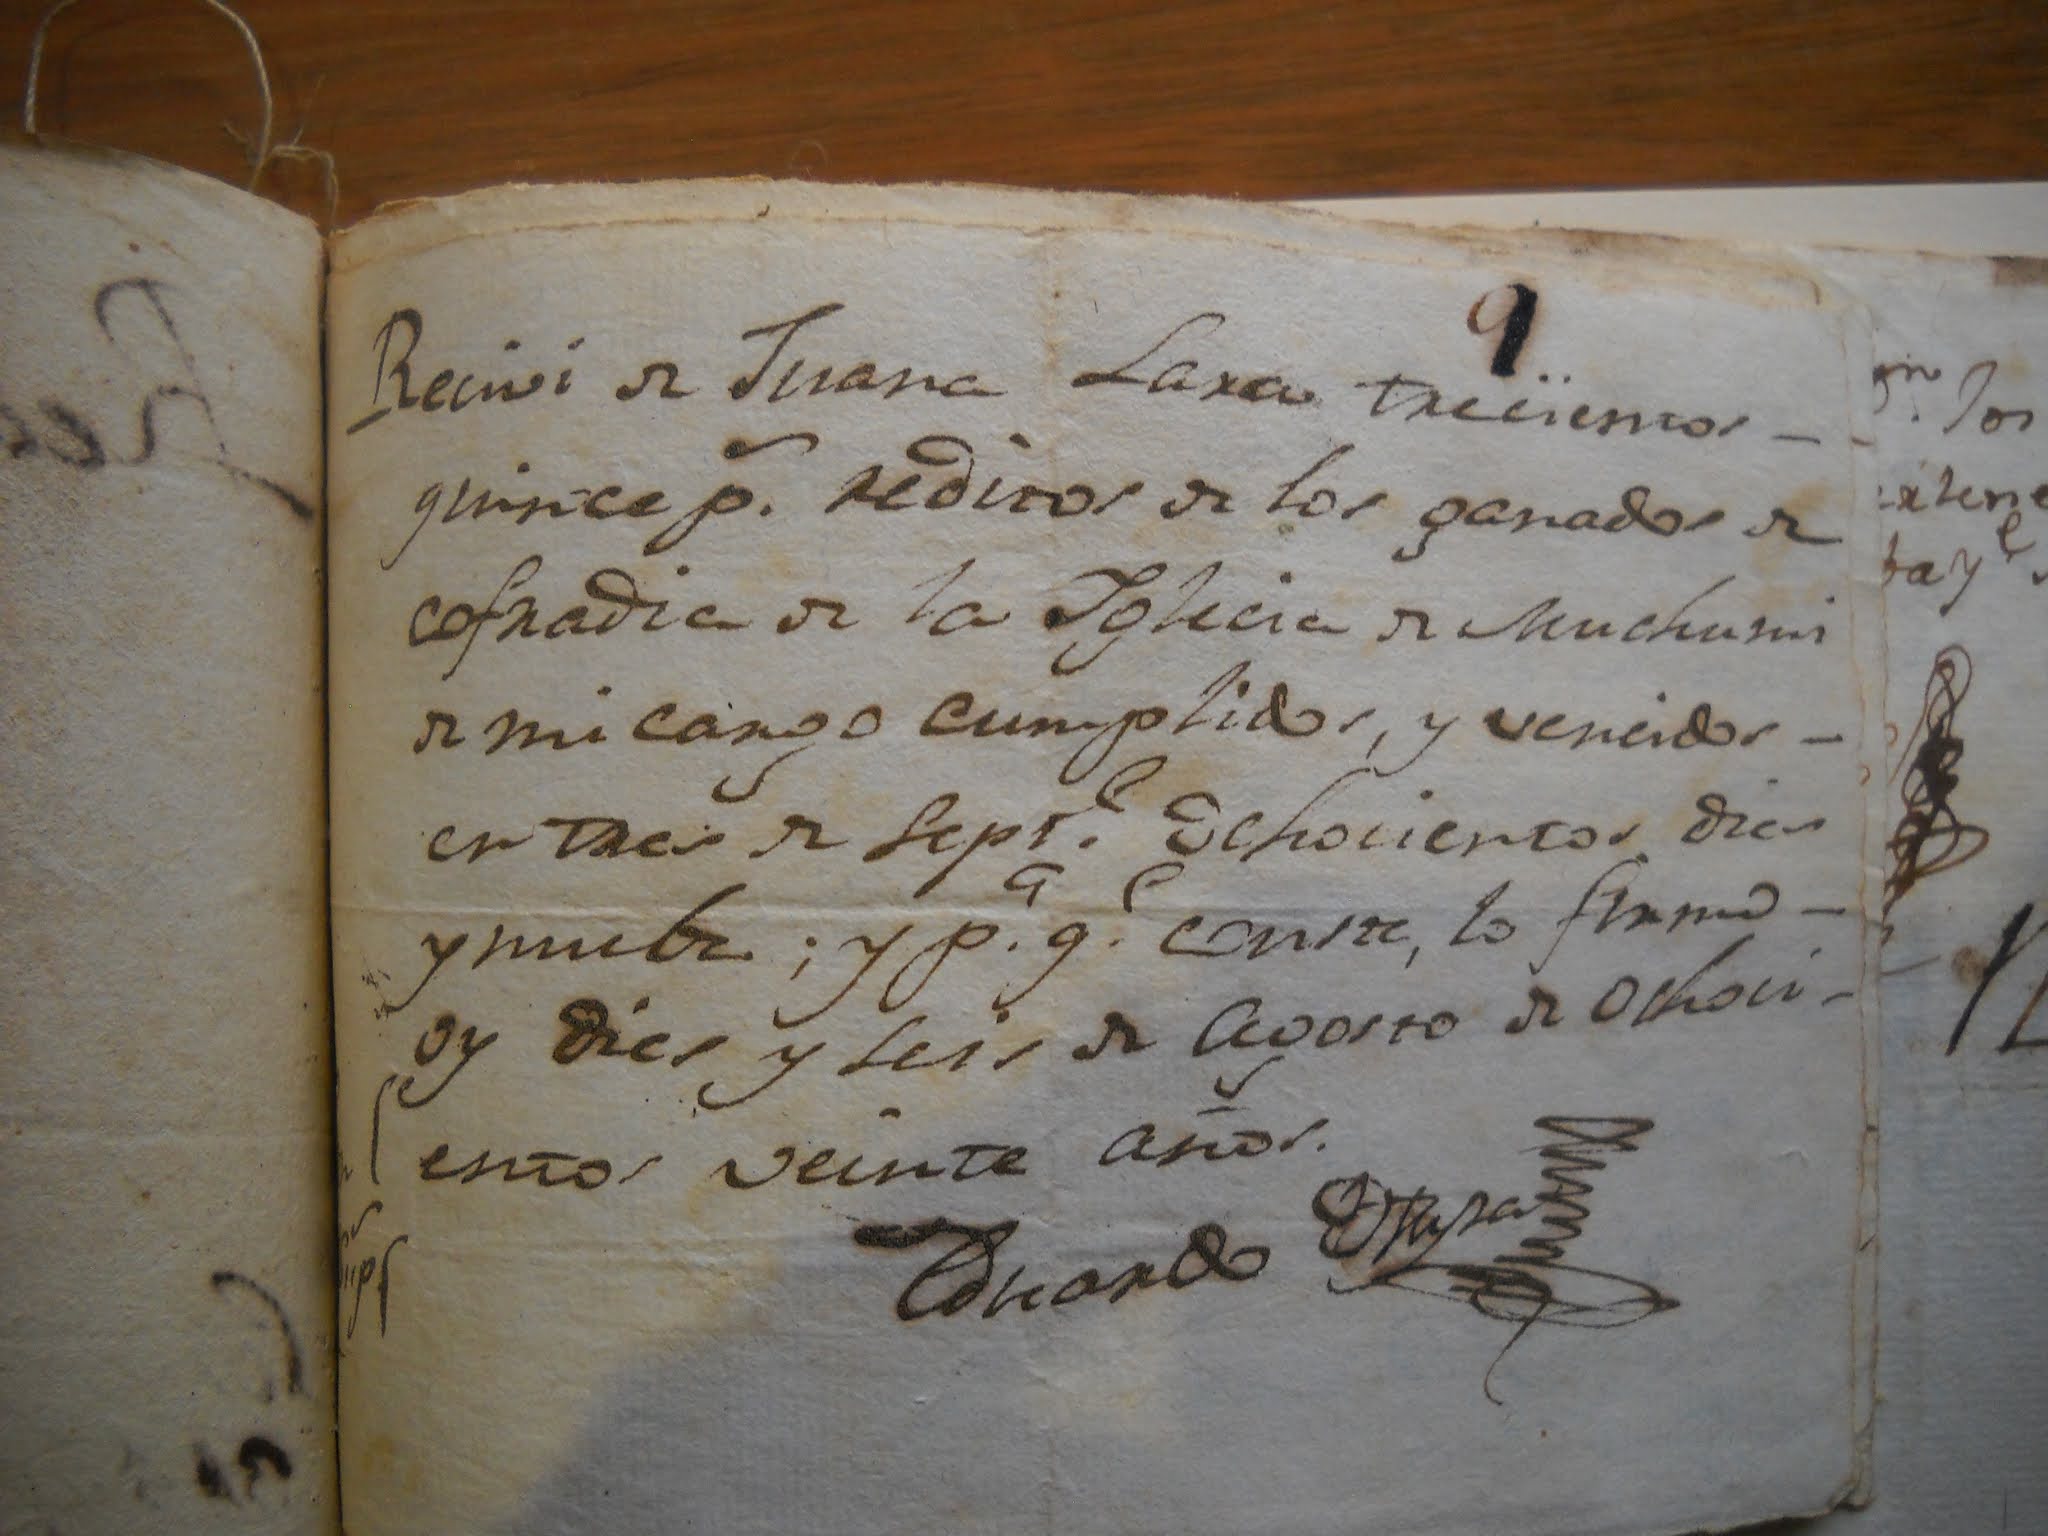 9
Recivi de Juana Lara trecientos
quince p.s reditos de los ganados de
cofradia de la Yglecia de Muchumi
de mi cargo cumplidos, y vencidos
en tres de Sept.e Ochocientos dies
y nuebe; y p.a q.e conste, lo firmo
oy dies y seis de Agosto de Ochoci-
entos veinte años.
Eduardo